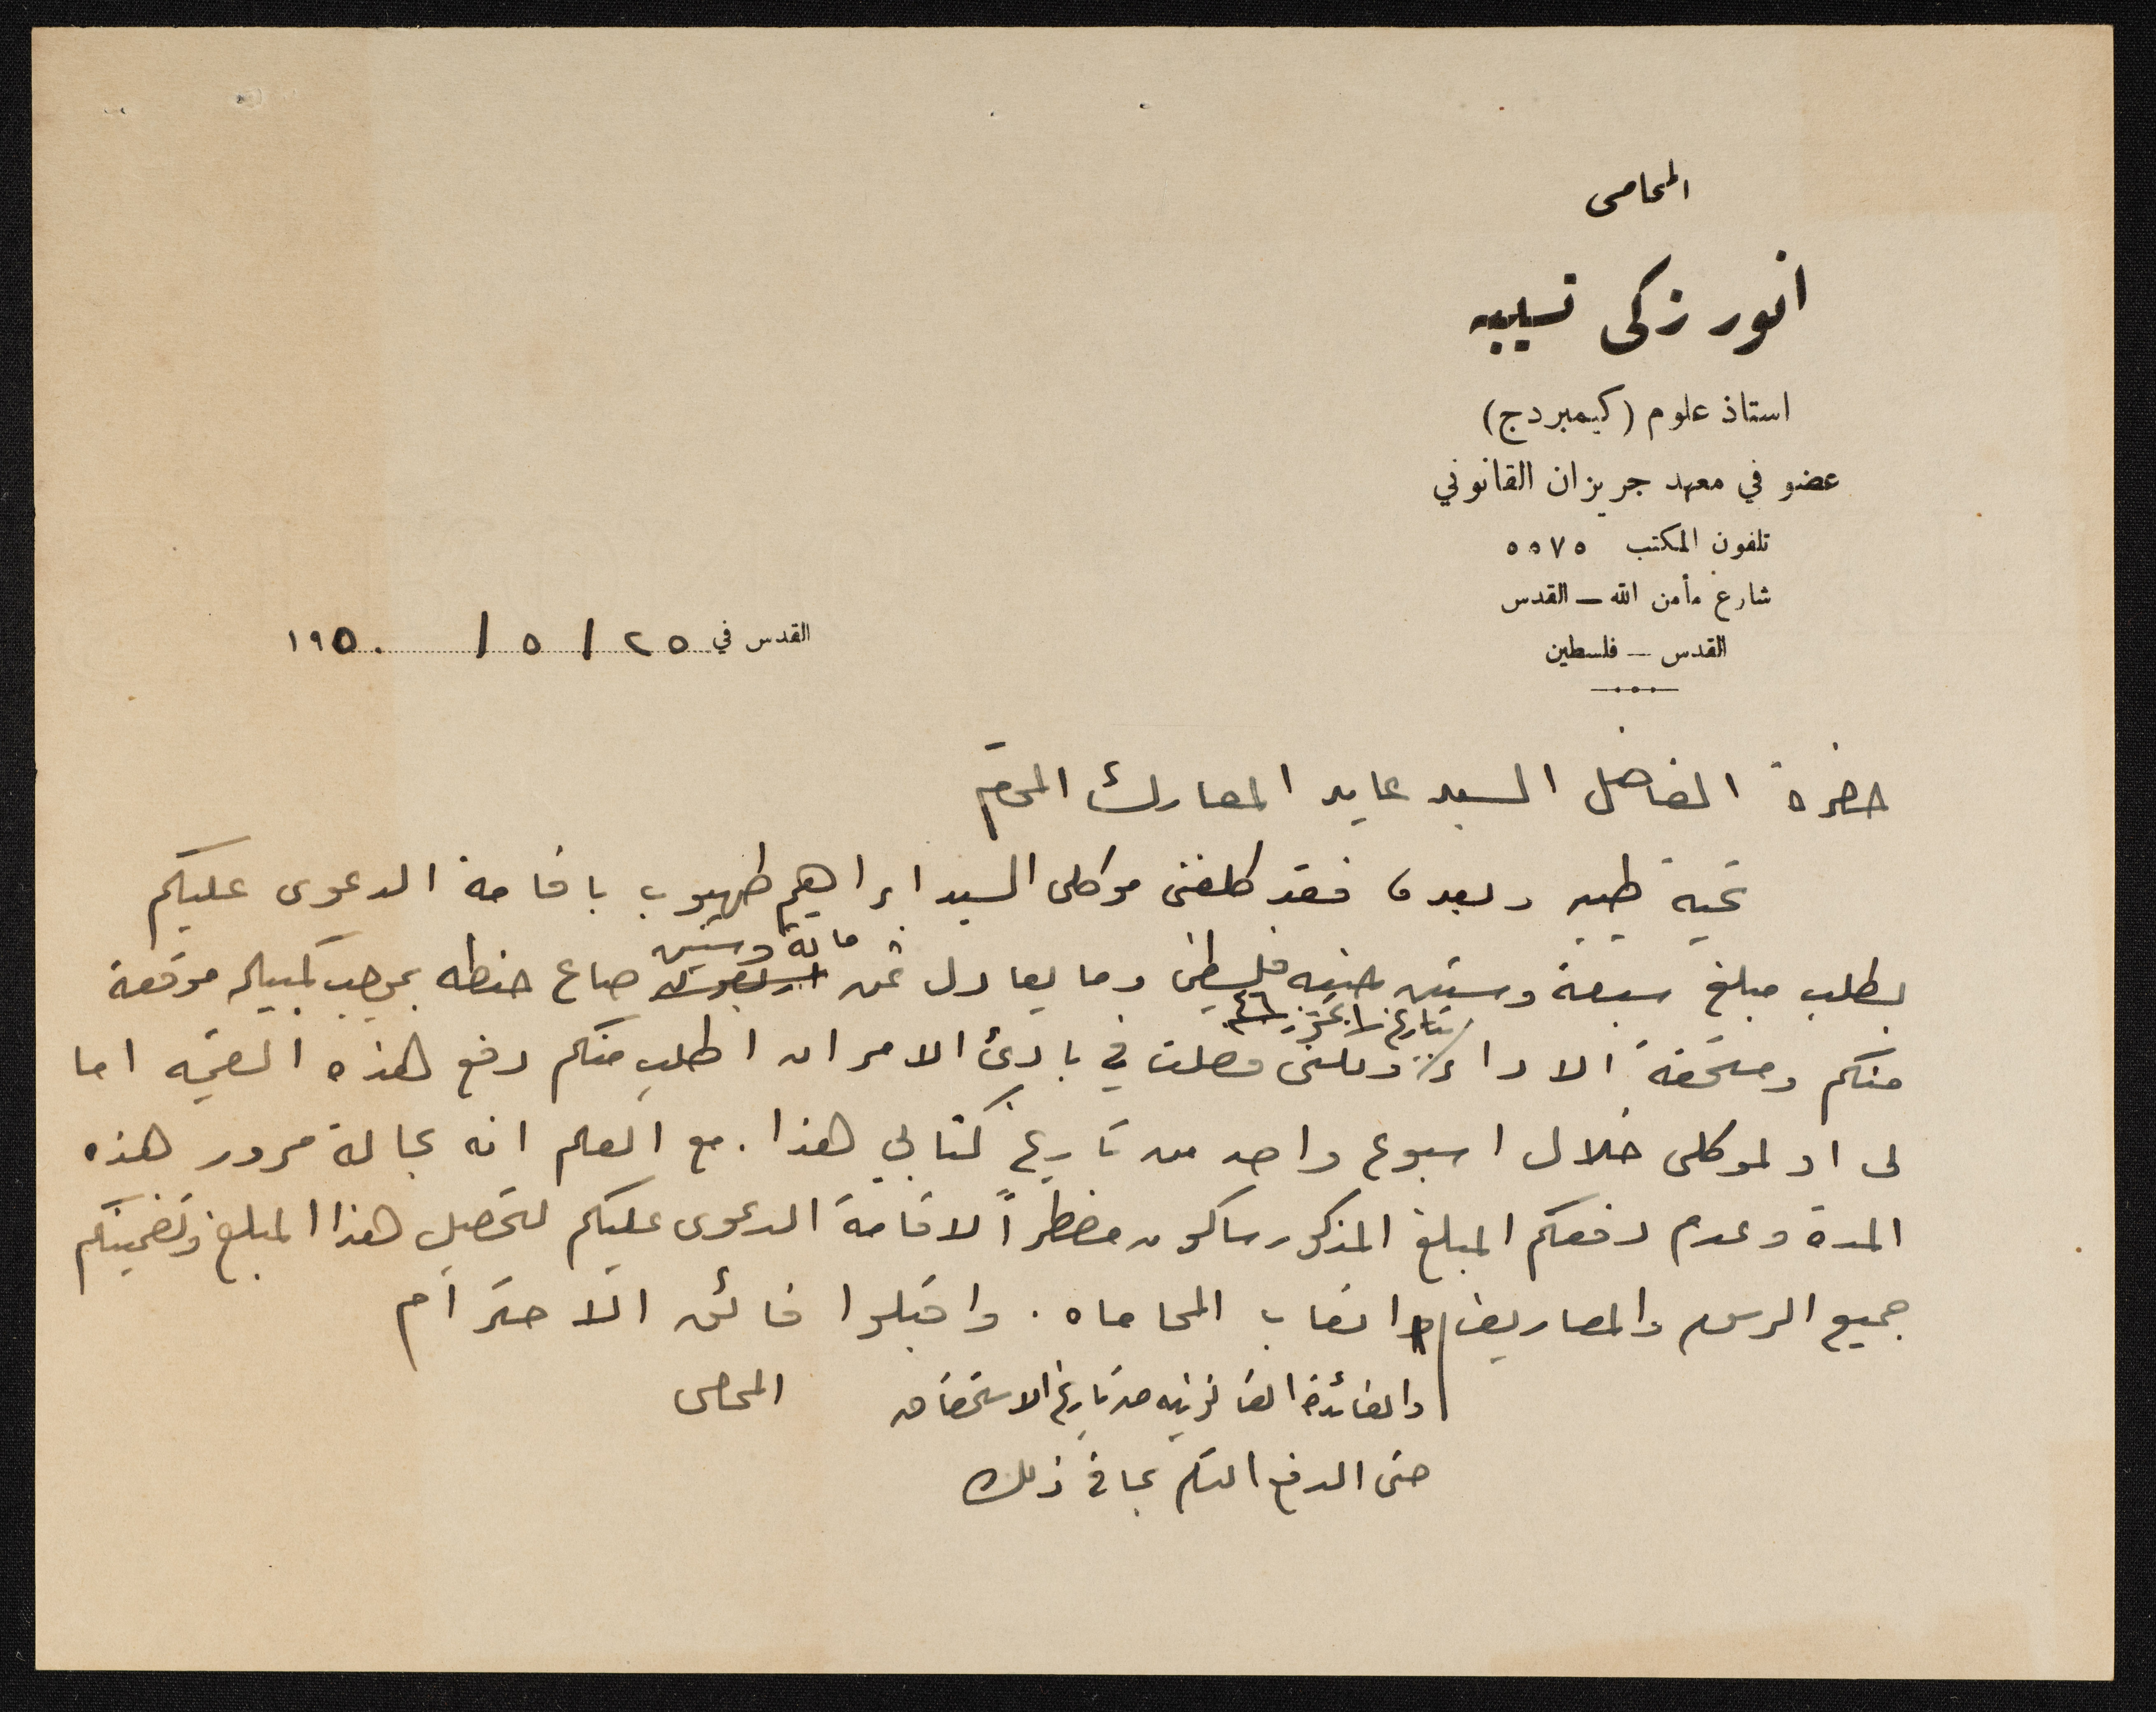 المحامى
انور زكى نسيبه
استاذ علوم (كيمبردج)
عضو في معهد جريزان القانوني
تلفون المكتب ٥٥٧٥
شارع مأمن الله – القدس
القدس – فلسطين
القدس في ٢٥ / ٥ / ١٩٥٠
حضرة الفاضل السيد عايد المعارك المحترم
تحية طيبه وبعد، فقد كلفنى موكلى السيد ابراهيم طهبوب باقامة الدعوى عليكم
مائة وستين
بطلب مبلغ سبعة وستين جنيه فلسطينى وما يعادل ثمن صاع حنطه بموجب كمبياله موقعة
بتاريخ ١ تموز ٤٦
منكم ومستحقة الاداء ولكنى فضلت في بادئ الامر ان اطلب منكم دفع هذه القيمه اما
لى او لموكلى خلال اسبوع واحد من تاريخ كتابي هذا. مع العلم انه بحالة مرور هذه
المدة وعدم دفعكم المبلغ المذكور ساكون مضطراً لاقامة الدعوى عليكم لتحصيل هذا المبلغ وتضمينكم
جميع الرسوم والمصاريف واتعاب المحاماه. واقبلوا فائق الاحترام
والفائدة القانونيه من تاريخ الاستحقاق
المحامى
حتى الدفع التام بما في ذلك